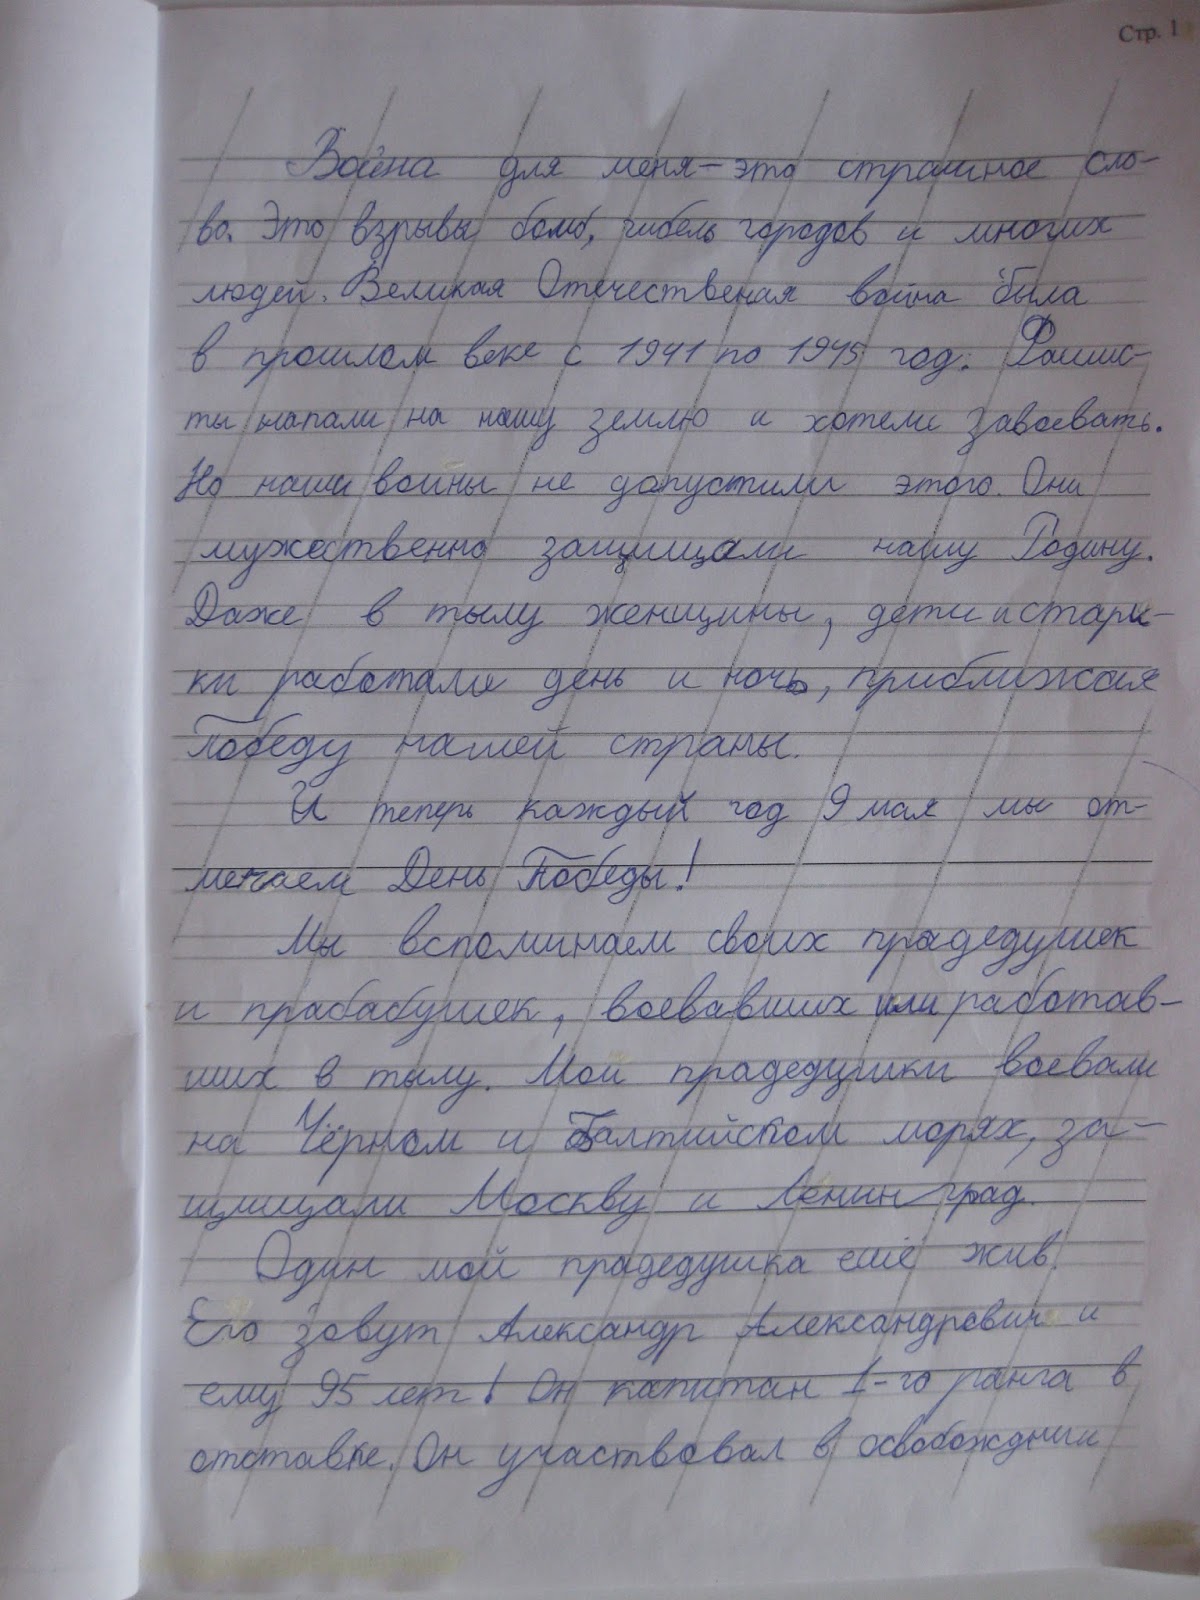 Стр. 1
Война для меня – это страшное сло-
во. Это взрывы бомб, гибель городов и многих
людей. Великая Отечественая война была
в прошлом веке с 1941 по 1945 год. Фашис-
ты напали на нашу землю и хотели завоевать.
Но наши войны не допустили этого. Они
мужественно защищали нашу Родину.
Даже в тылу женщины, дети и стари-
ки работали день и ночь, приближая
Победу нашей страны.
И теперь каждый год 9 мая мы от-
мечаем День Победы!
Мы вспоминаем своих прадедушек
и прабабушек, воевавших или работав-
ших в тылу. Мои прадедушки воевали
на Чёрном и Балтийском морях, за-
щищали Москву и Ленинград.
Один мой прадедушка ещё жив.
Его зовут Александр Александрович и
ему 95 лет! Он капитан 1-го ранга в
отставке. Он участвовал в освобождении